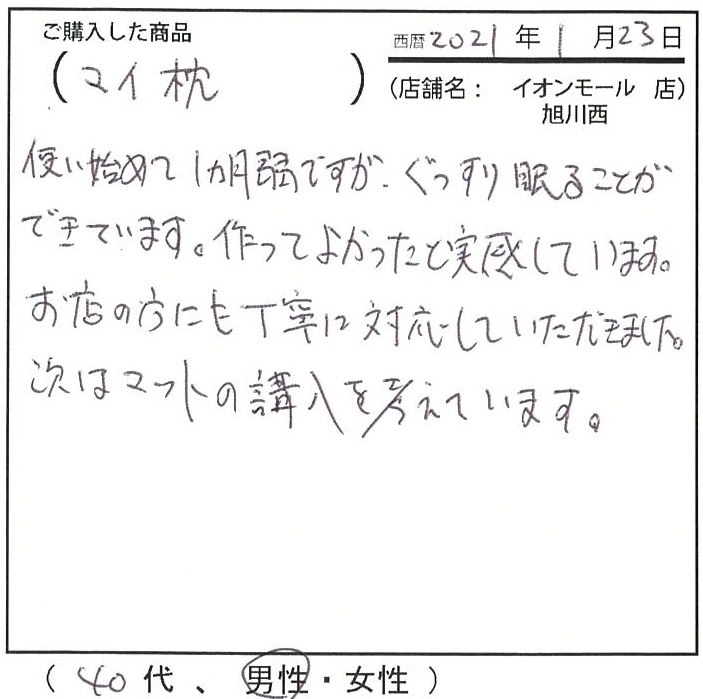 ご購入した商品
西暦2021年1月23日
(マイ枕)
(店舗名: イオンモール 店)
旭川西
使い始めて1カ月弱ですが、ぐっすり眠ることが
できています。作ってよかったと実感しています。
お店の方にも丁寧に対応していただきました。
次はマットの講入を考えています。
(40代、男性・女性)